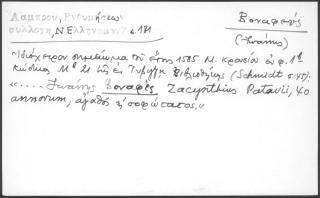 Λάμπρου, Ενθυμήσεων
συλλογή, Ν. Ελληνομν. 7 σ. 181
Βοναφεύς
(Ἰωάννης)
Ἰδιόχειρον σημείωμα τοῦ ἔτους 1585 Μ. Κρουσίου ἐν φ. 1α
κώδικος Mb 21 τῆς ἐν Τυβίγγῃ Βιβλιοθήκης (Schmidt σ. 45):
«.... Ἰωάννης Βοναφεύς Zacynthius Patavii, 40
annorum, ἀγαθὸς καὶ σοφώτατος.»